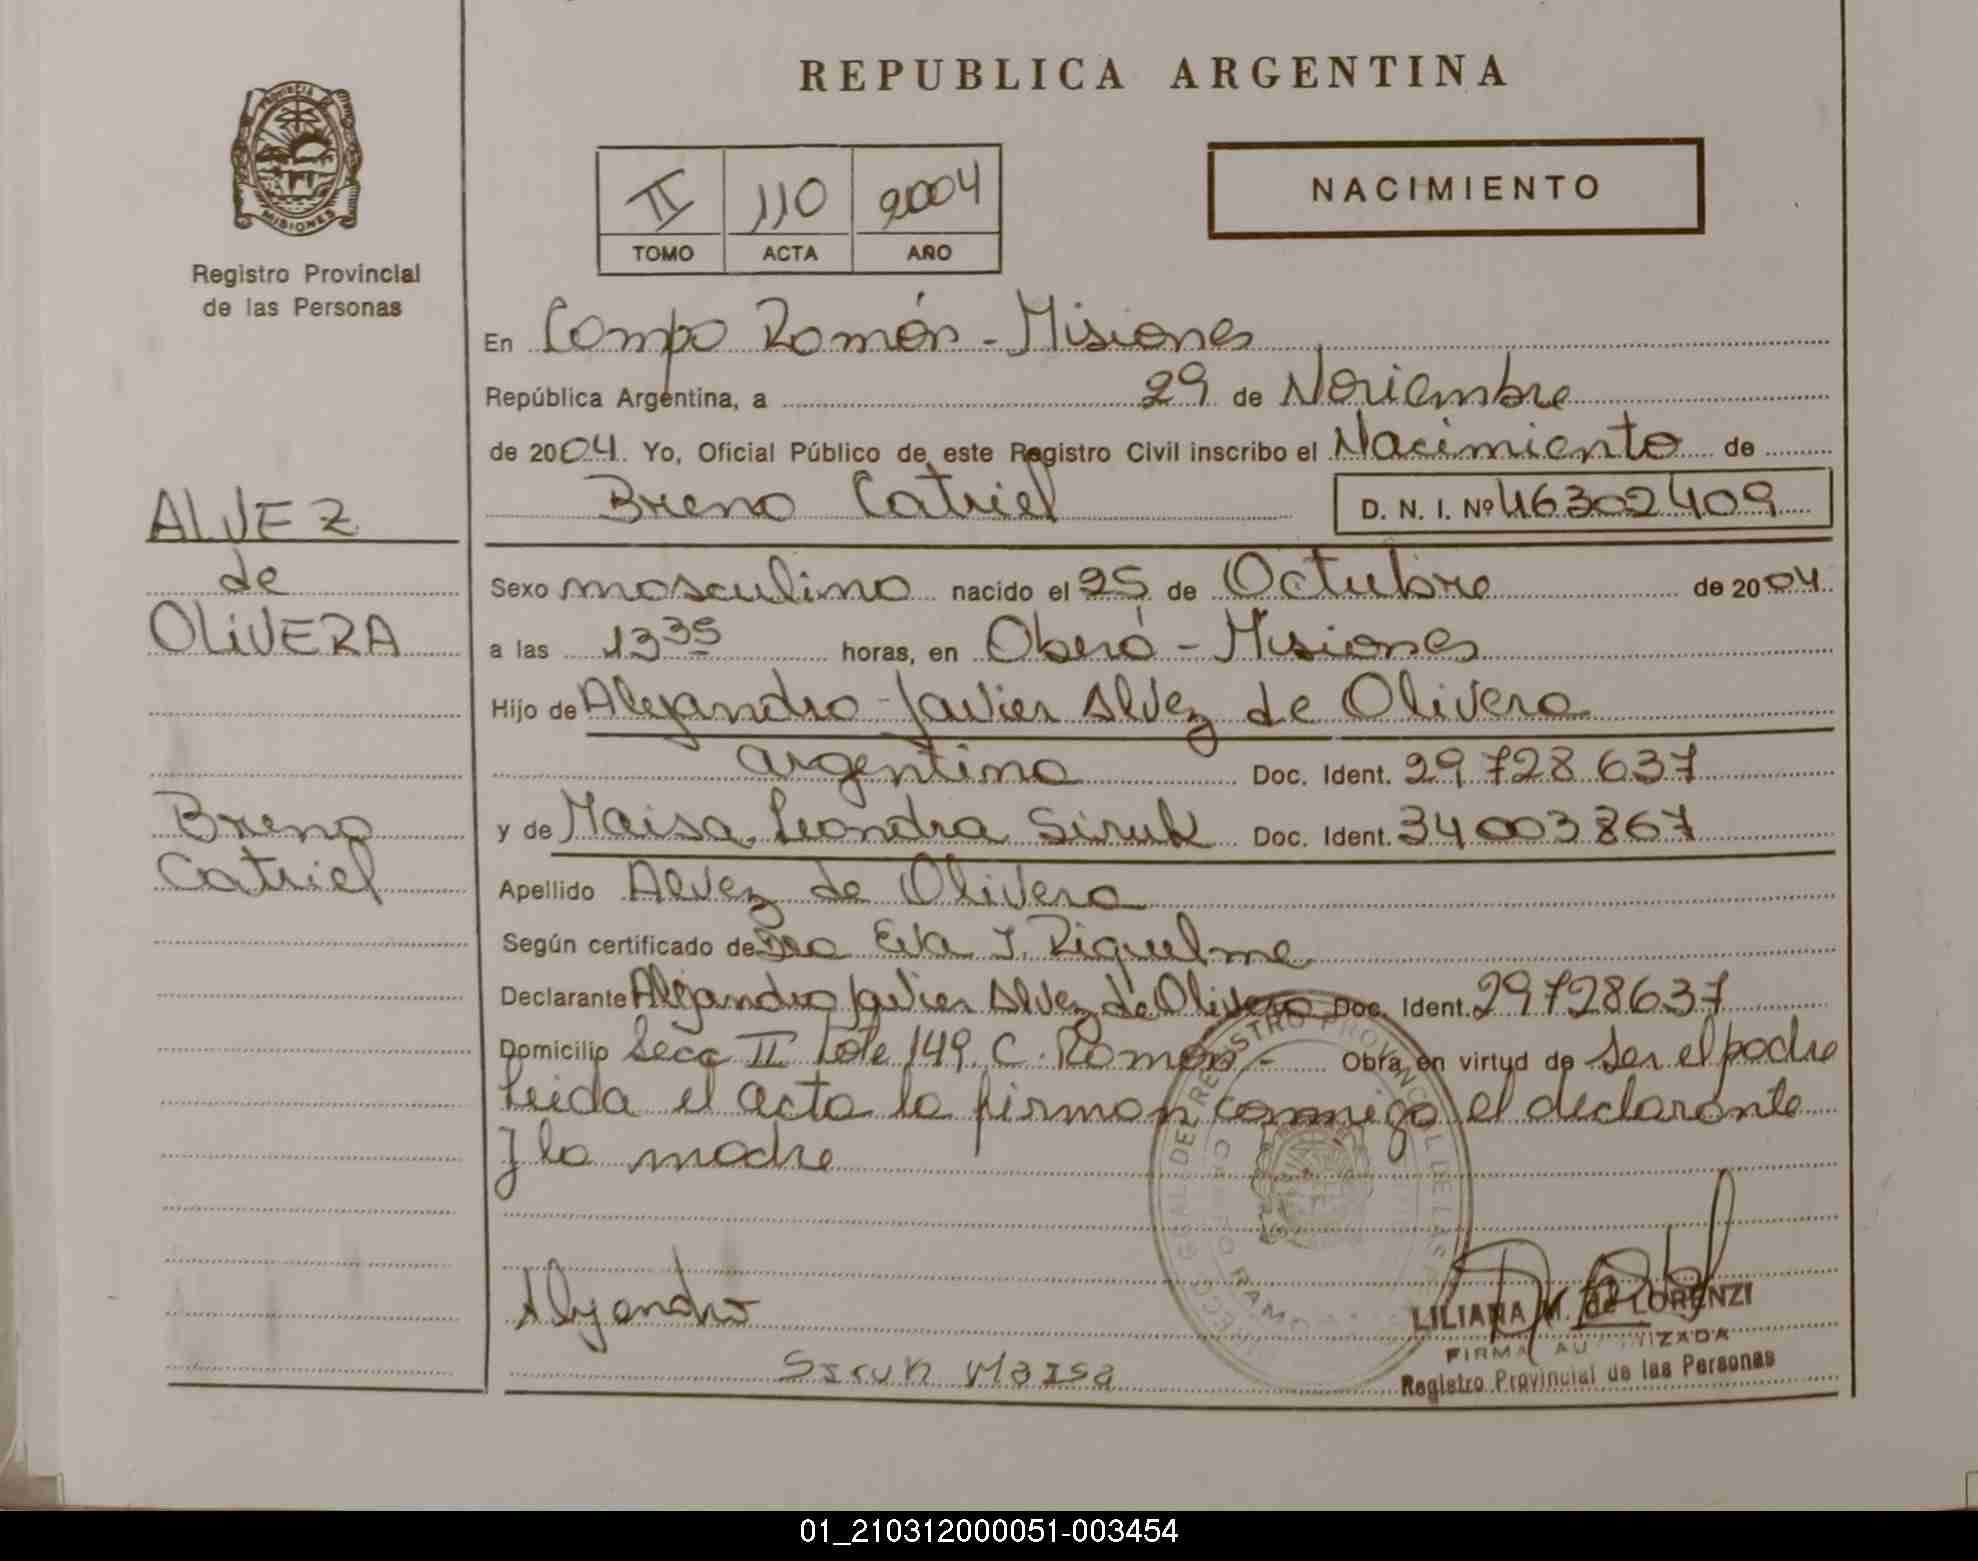 REPUBLICA ARGENTINA
PROVINCIA DE
MISIONES
Registro Provincial
de las Personas
II 110 2004
TOMO ACTA AÑO
NACIMIENTO
En Campo Ramón - Misiones
República Argentina, a 29 de Noviembre
de 2004. Yo, Oficial Público de este Registro Civil inscribo el Nacimiento de
Breno Catriel D. N. I. Nº 46302409
ALVEZ
de
OLIVERA
Breno
Catriel
Sexo masculino nacido el 25 de Octubre de 2004
a las 13 35 horas, en Oberá - Misiones
Hijo de Alejandro Javier Alvez de Olivera
argentino Doc. Ident. 29728637
y de Maisa Leandra Siruk Doc. Ident. 34003867
Apellido Alvez de Olivera
Según certificado de Dra Eva J. Riquelme
Declarante Alejandro Javier Alvez de Olivera Doc. Ident. 29728637
Domicilio Secc II Lote 149 C. Ramón - Obra en virtud de ser el padre
Leida el acta la firman conmigo el declarante
y la madre
REGISTRO PROVINCIAL DE LAS
Alejandro
Siruk Maisa
LILIANA M. de LORENZI
FIRMA AUTORIZADA
Registro Provincial de las Personas
01_210312000051-003454